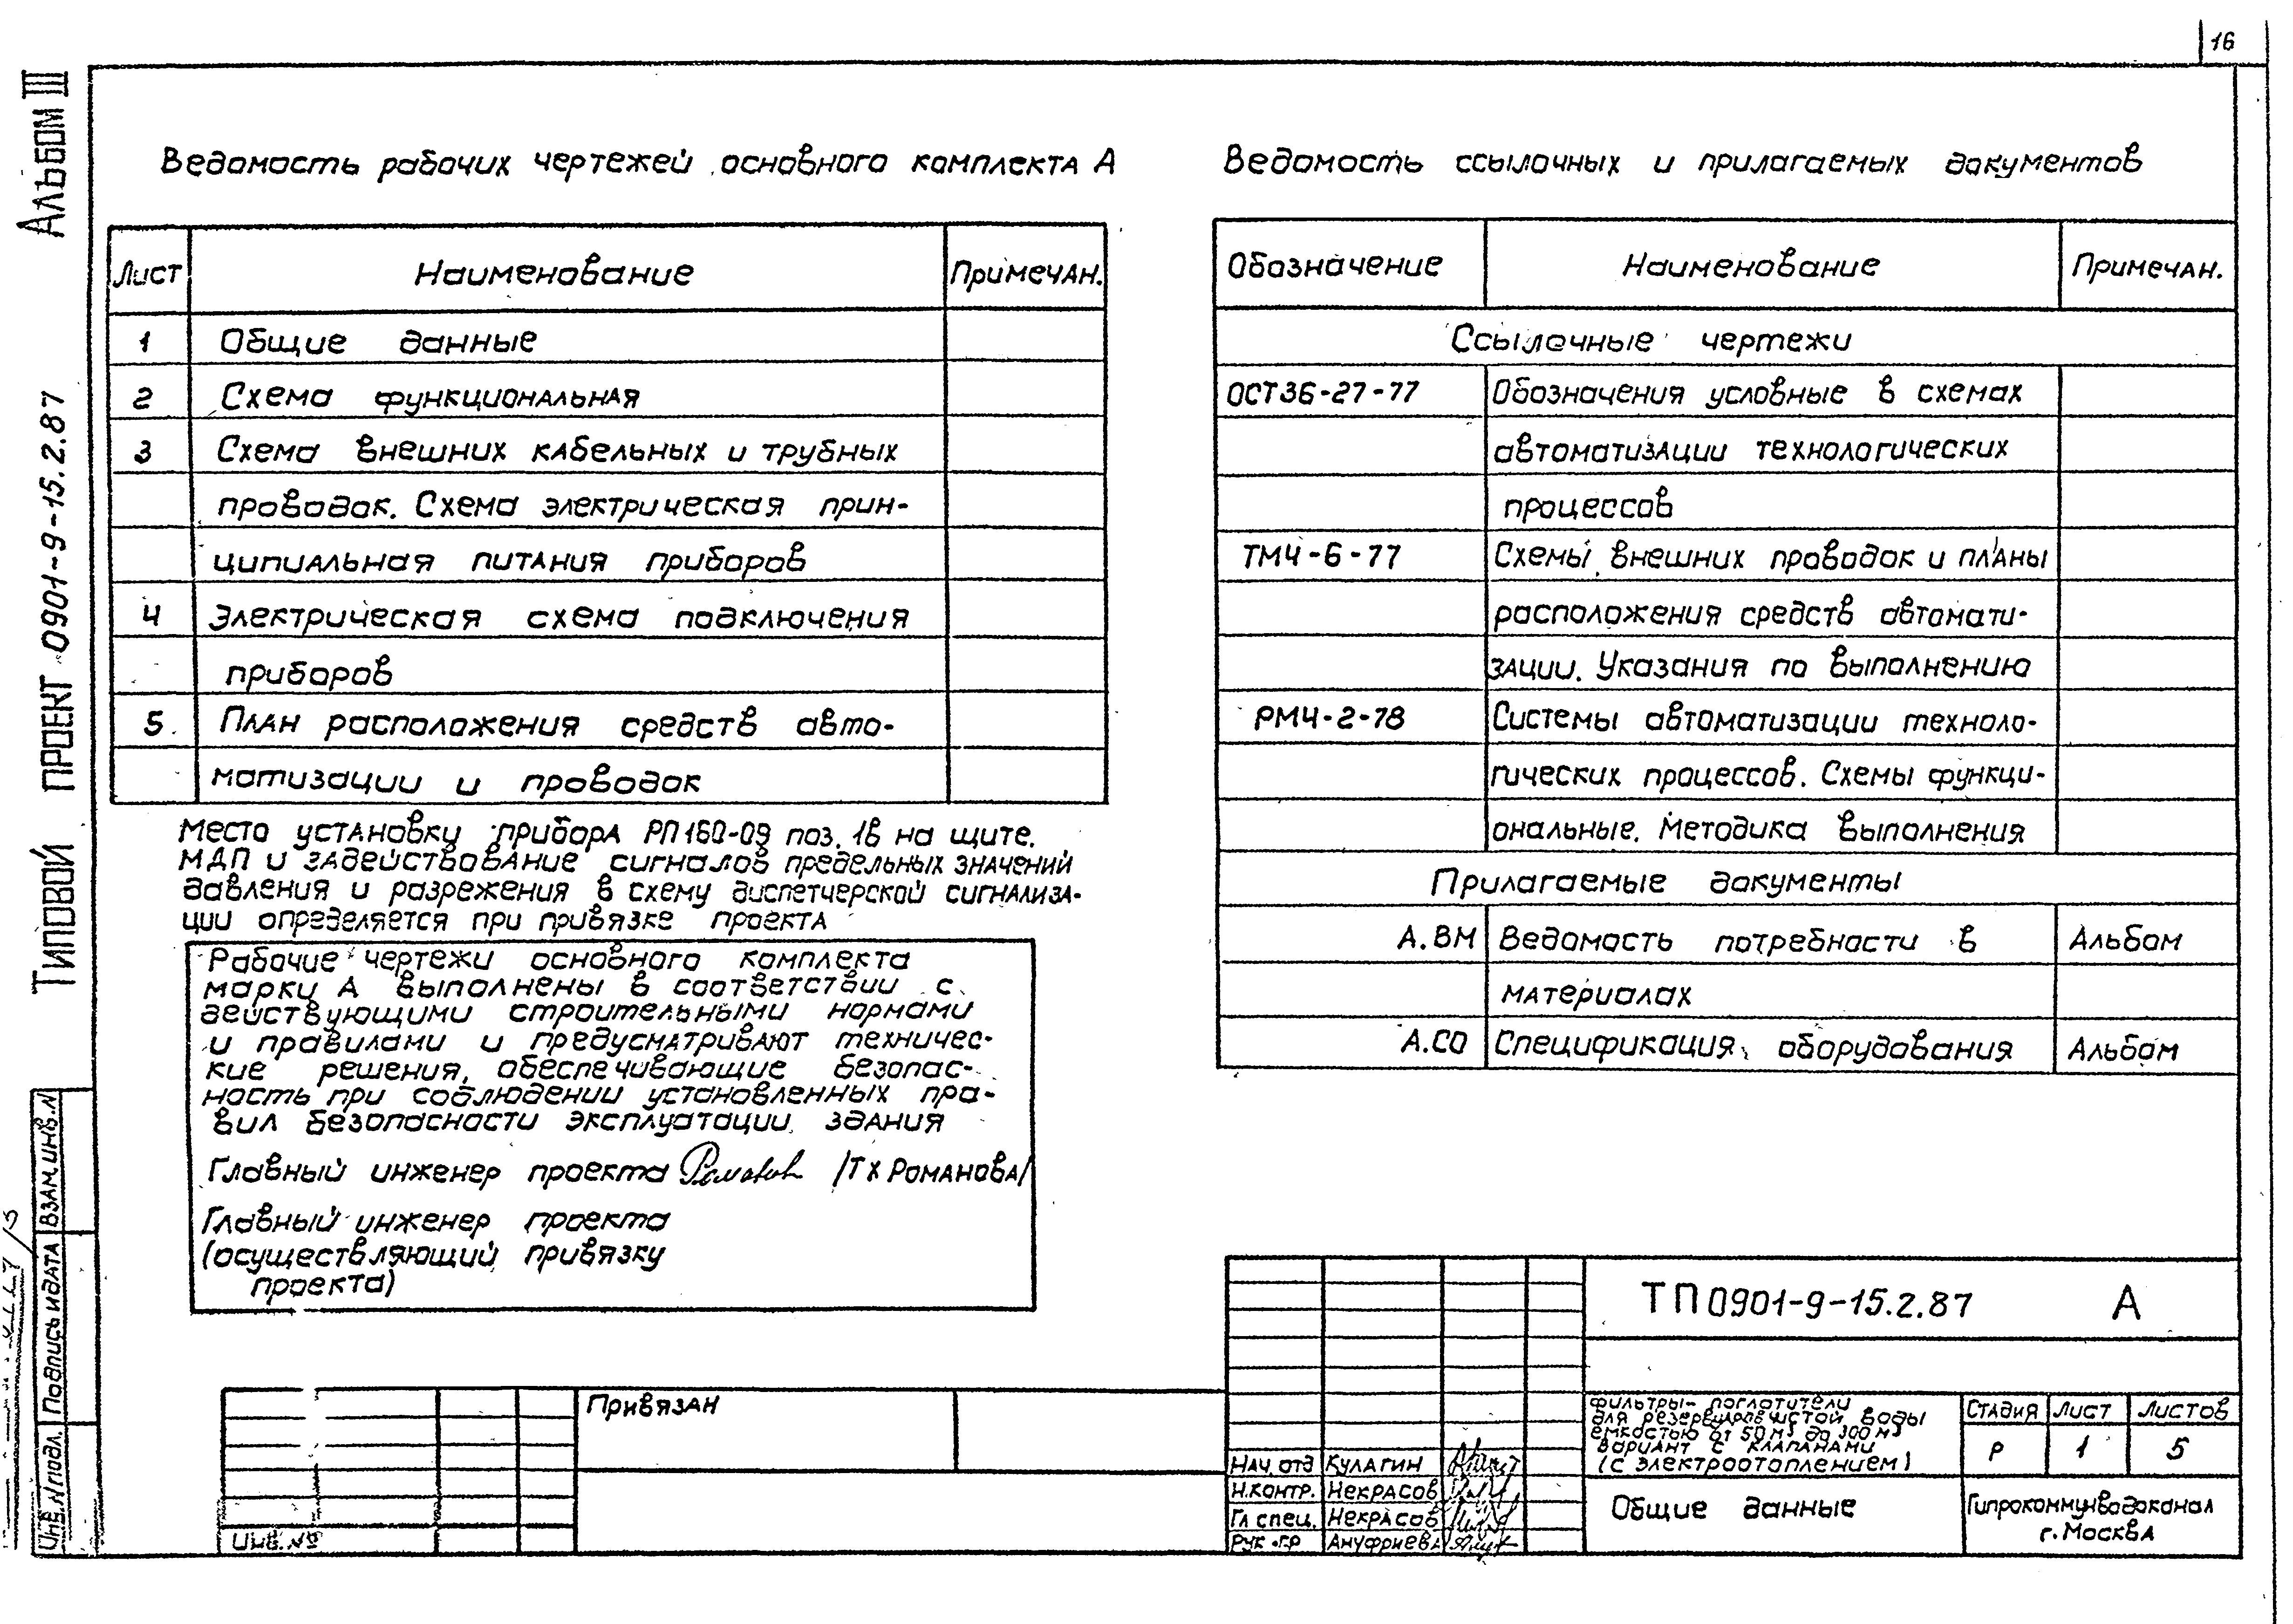 16
Альбом III
Типовой проект 0901-9-15.2.87
Ведомость рабочих чертежей основного комплекта А
Лист Наименование Примечан.
1 Общие данные
2 Схема функциональная
3 Схема внешних кабельных и трубных
проводок. Схема электрическая прин-
ципиальная питания приборов
4 Электрическая схема подключения
приборов
5. План расположения средств авто-
матизации и проводок
Место установку прибора РП160-09 поз. 1в на щите.
МДП и задействование сигналов предельных значений
давления и разрежения в схему диспетчерской сигнализа-
ции определяется при привязке проекта
Рабочие чертежи основного комплекта
марки А выполнены в соответствии с
действующими строительными нормами
и правилами и предусматривают техничес-
кие решения, обеспечивающие безопас-
ность при соблюдении установленных пра-
вил безопасности эксплуатации здания
Главный инженер проекта /ТХ Романова/
Главный инженер проекта
(осуществляющий привязку
проекта)
Ведомость ссылочных и прилагаемых документов
Обозначение Наименование Примечан.
Ссылочные чертежи
ОСТ36-27-77 Обозначения условные в схемах
автоматизации технологических
процессов
ТМ4-6-77 Схемы внешних проводок и планы
расположения средств автомати-
зации. Указания по выполнению
РМ4-2-78 Системы автоматизации техноло-
гических процессов. Схемы функци-
ональные. Методика выполнения
Прилагаемые документы
А.ВМ Ведомость потребности в Альбом
материалах
А.СО Спецификация оборудования Альбом
Взам.инв.N
Подпись и дата
Инв.N подл.
Привязан
Инв.№
ТП 0901-9-15.2.87 А
Фильтры-поглотители
для резервуаров чистой воды
емкостью от 50 м³ до 300 м³
вариант с клапанами
(с электроотоплением)
Стадия Лист Листов
Р 1 5
Нач.отд Кулагин
Н.контр. Некрасов
Гл спец. Некрасов
Рук.гр Ануфриева
Общие данные
Гипрокоммунводоканал
г. Москва